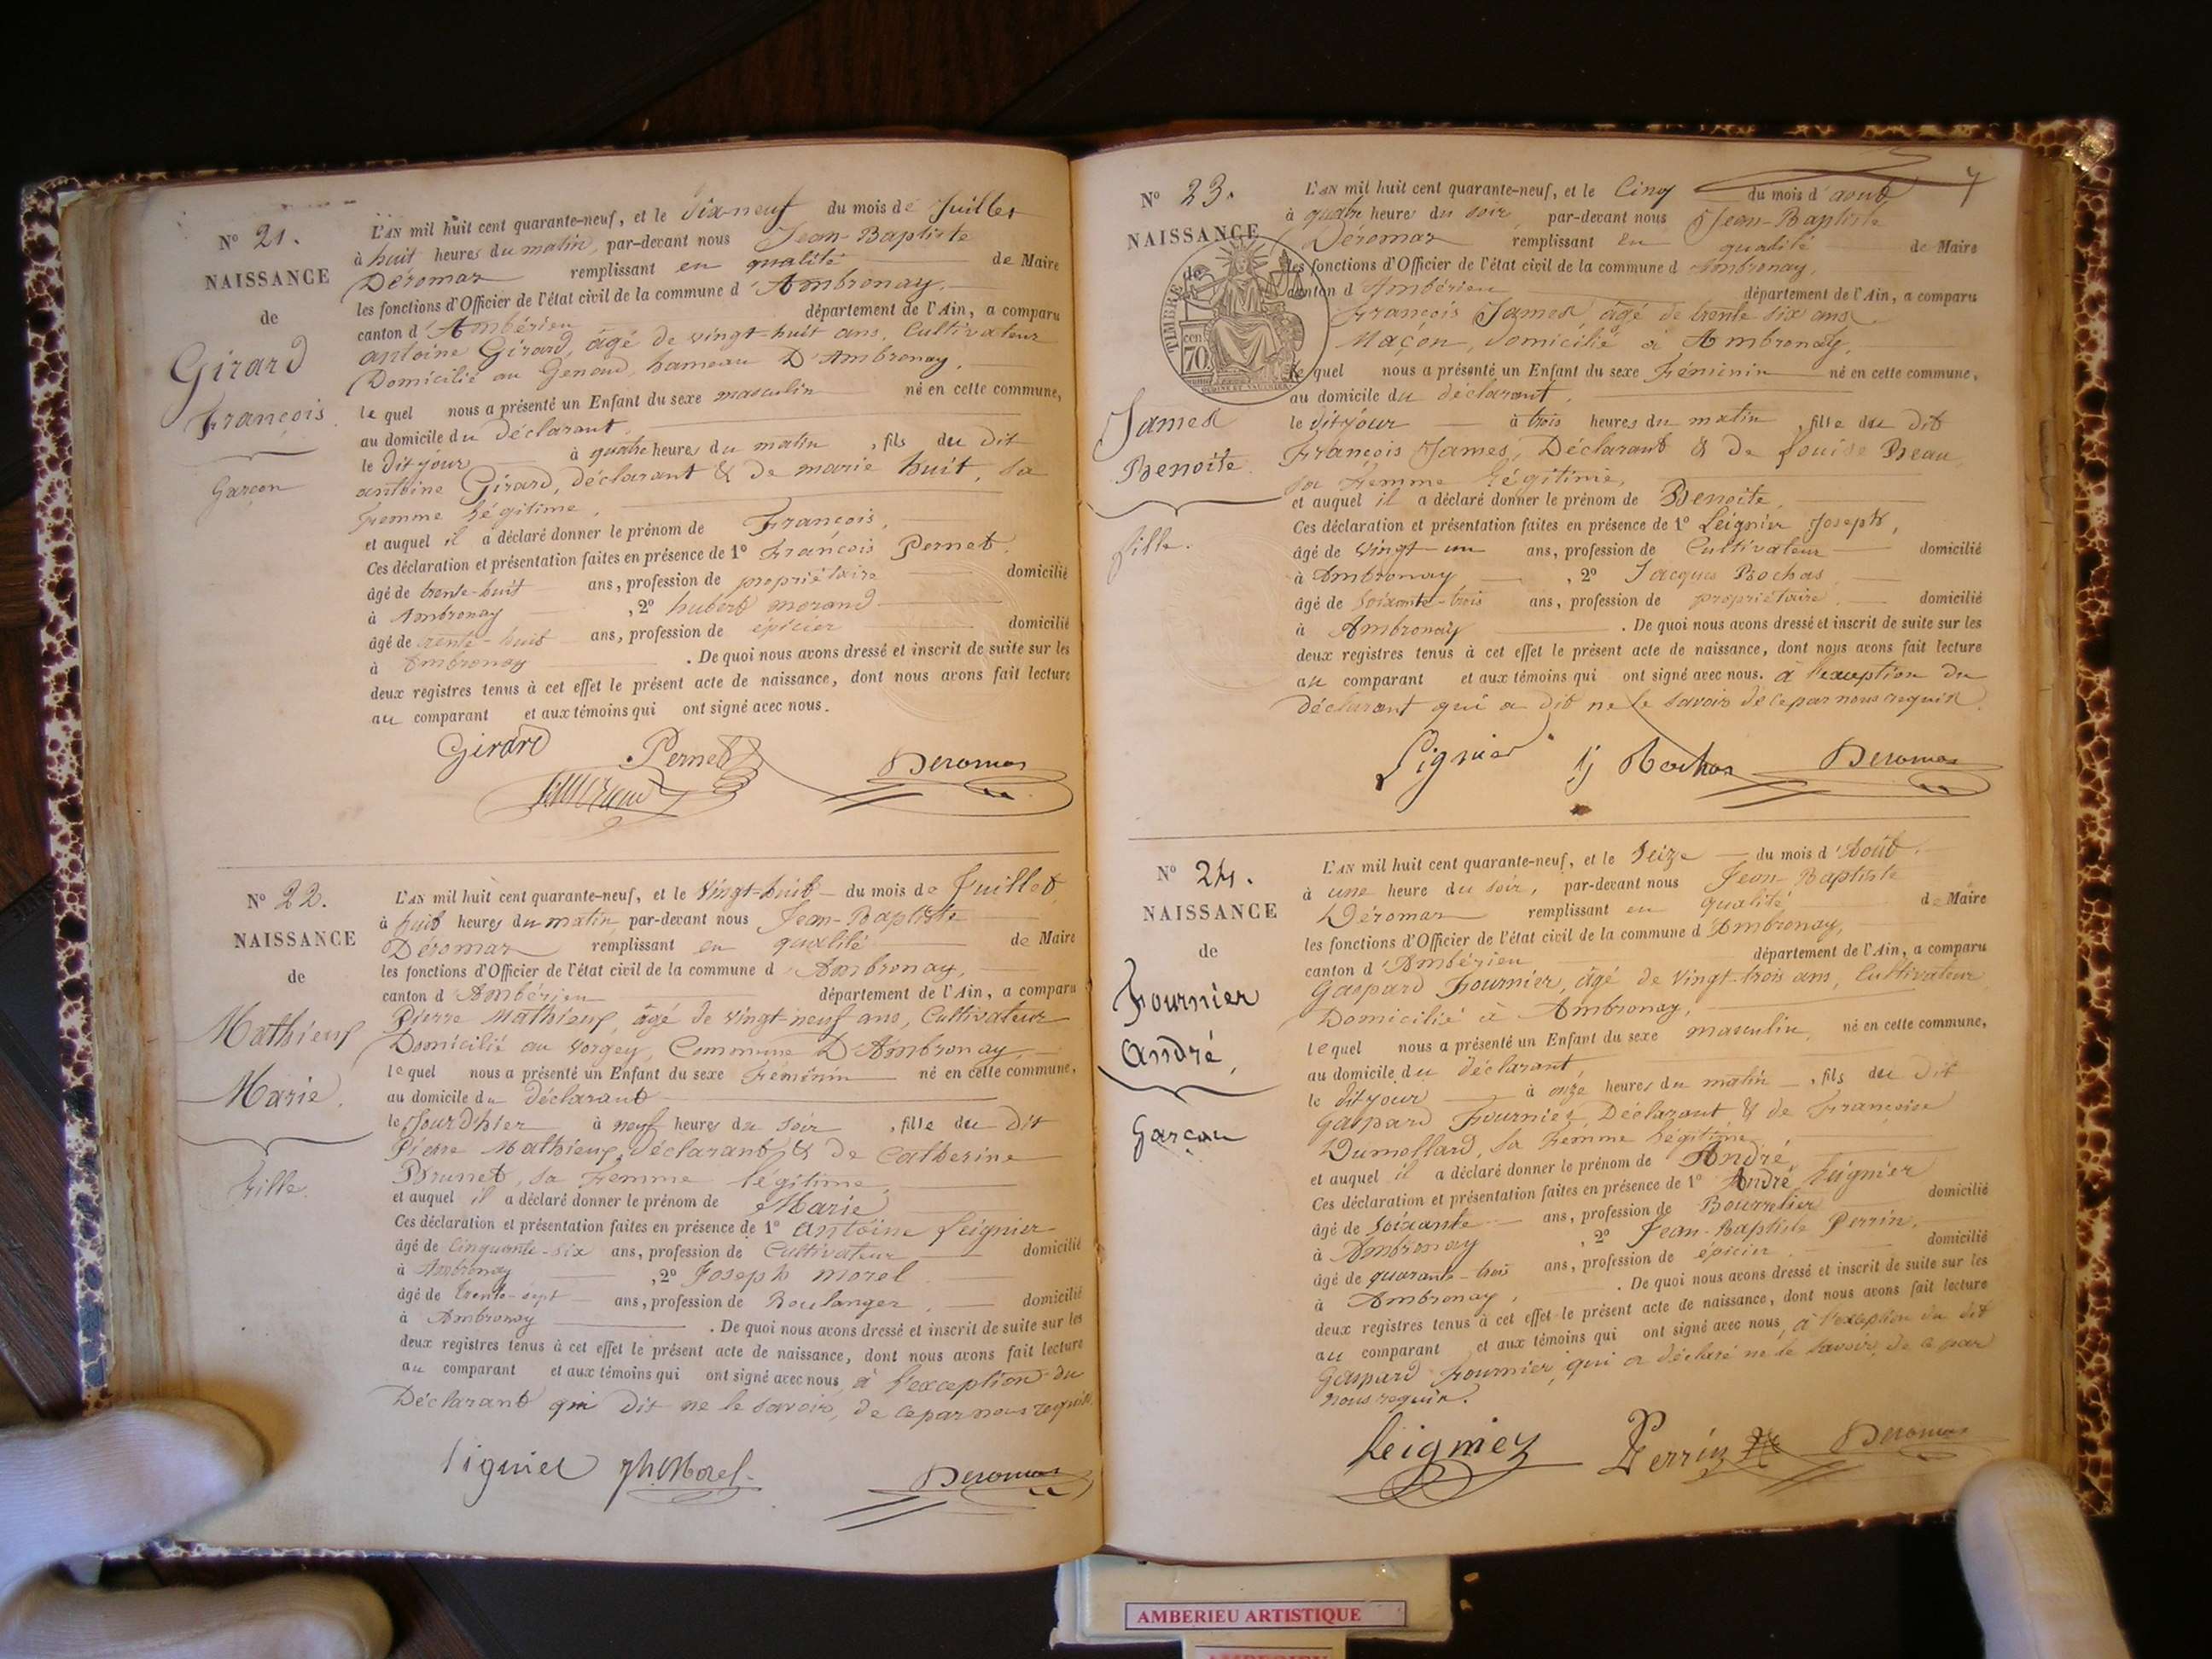 N° 21.
NAISSANCE
de
Girard
François.
Garçon
L'AN mil huit cent quarante-neuf, et le dix-neuf du mois de Juillet
à huit heures du matin, par-devant nous Jean-Baptiste
Déromas remplissant en qualité de Maire
les fonctions d'Officier de l'état civil de la commune d'Ambronay,
canton d'Ambérieu département de l'Ain, a comparu
antoine Girard, âgé de vingt-huit ans, Cultivateur
Domicilié au Genoud, hameau D'Ambronay,
lequel nous a présenté un Enfant du sexe masculin né en cette commune,
au domicile du déclarant,
le dit jour à quatre heures du matin, fils du dit
antoine Girard, déclarant & de marie huit, sa
femme légitime,
et auquel il a déclaré donner le prénom de François,
Ces déclaration et présentation faites en présence de 1° François Pernet.
âgé de trente-huit ans, profession de propriétaire domicilié
à Ambronay, 2° hubert morand
âgé de trente-huit ans, profession de épicier domicilié
à Ambronay. De quoi nous avons dressé et inscrit de suite sur les
deux registres tenus à cet effet le présent acte de naissance, dont nous avons fait lecture
au comparant et aux témoins qui ont signé avec nous.
Girard Pernet Deromas
N° 22.
NAISSANCE
de
Mathieux
Marie.
Fille.
L'AN mil huit cent quarante-neuf, et le Vingt-huit du mois de Juillet
à huit heures du matin, par-devant nous Jean-Baptiste
Déromas remplissant en qualité de Maire
les fonctions d'Officier de l'état civil de la commune d'Ambronay,
canton d'Ambérieu département de l'Ain, a comparu
Pierre Mathieux, âgé de vingt-neuf ans, Cultivateur
Domicilié au Vorgey, Commune D'Ambronay,
lequel nous a présenté un Enfant du sexe Feminin né en cette commune,
au domicile du déclarant
le Jourd'hier à neuf heures du soir, fille du dit
Pierre Mathieux, déclarant, & de Catherine
Brunet, sa Femme légitime,
et auquel il a déclaré donner le prénom de Marie
Ces déclaration et présentation faites en présence de 1° antoine Leignier
âgé de Cinquante-six ans, profession de Cultivateur domicilié
à Ambronay, 2° Joseph morel
âgé de trente-sept ans, profession de Boulanger, domicilié
à Ambronay. De quoi nous avons dressé et inscrit de suite sur les
deux registres tenus à cet effet le présent acte de naissance, dont nous avons fait lecture
au comparant et aux témoins qui ont signé avec nous, à l'exception du
Déclarant qui dit ne le savoir, de ce par nous requis.
Lignier Morel Deromas
7
N° 23.
NAISSANCE
de
TIMBRE
cen 70
James
Benoite.
Fille.
L'AN mil huit cent quarante-neuf, et le Cinq du mois d'aout
à quatre heures du soir, par-devant nous Jean-Baptiste
Déromas remplissant en qualité de Maire
les fonctions d'Officier de l'état civil de la commune d'Ambronay,
canton d'Ambérieu département de l'Ain, a comparu
François James, âgé de trente six ans
Maçon, domicilié à Ambronay,
lequel nous a présenté un Enfant du sexe Féminin né en cette commune,
au domicile du déclarant,
le dit jour à trois heures du matin, fille du dit
François James, Déclarant & de Louise Beau
sa Femme légitime,
et auquel il a déclaré donner le prénom de Benoite,
Ces déclaration et présentation faites en présence de 1° Leignier Joseph,
âgé de vingt-un ans, profession de Cultivateur domicilié
à Ambronay, 2° Jacques Rochas
âgé de soixante-trois ans, profession de propriétaire domicilié
à Ambronay. De quoi nous avons dressé et inscrit de suite sur les
deux registres tenus à cet effet le présent acte de naissance, dont nous avons fait lecture
au comparant et aux témoins qui ont signé avec nous. à l'exception du
déclarant qui a dit ne le savoir de ce par nous requis.
Lignier J Rochas Deromas
N° 24.
NAISSANCE
de
Fournier
André,
Garçon
L'AN mil huit cent quarante-neuf, et le Seize du mois d'Août.
à une heure du soir, par-devant nous Jean-Baptiste
Déromas remplissant en qualité de Maire
les fonctions d'Officier de l'état civil de la commune d'Ambronay,
canton d'Ambérieu département de l'Ain, a comparu
Gaspard Fournier, âgé de vingt-trois ans, Cultivateur
Domicilié à Ambronay,
lequel nous a présenté un Enfant du sexe masculin, né en cette commune,
au domicile du déclarant,
le dit jour à onze heures du matin, fils du dit
Gaspard Fournier, Déclarant & de Françoise
Dumollard, sa Femme légitime
et auquel il a déclaré donner le prénom de André,
Ces déclaration et présentation faites en présence de 1° André Leignier
âgé de soixante ans, profession de Bourrelier domicilié
à Ambronay, 2° Jean-Baptiste Perrin,
âgé de quarante-trois ans, profession de épicier domicilié
à Ambronay,. De quoi nous avons dressé et inscrit de suite sur les
deux registres tenus à cet effet le présent acte de naissance, dont nous avons fait lecture
au comparant et aux témoins qui ont signé avec nous, à l'exception du dit
Gaspard Fournier, qui a déclaré ne le savoir, de ce par
nous requis.
Leignier Perrin Deromas
AMBERIEU ARTISTIQUE